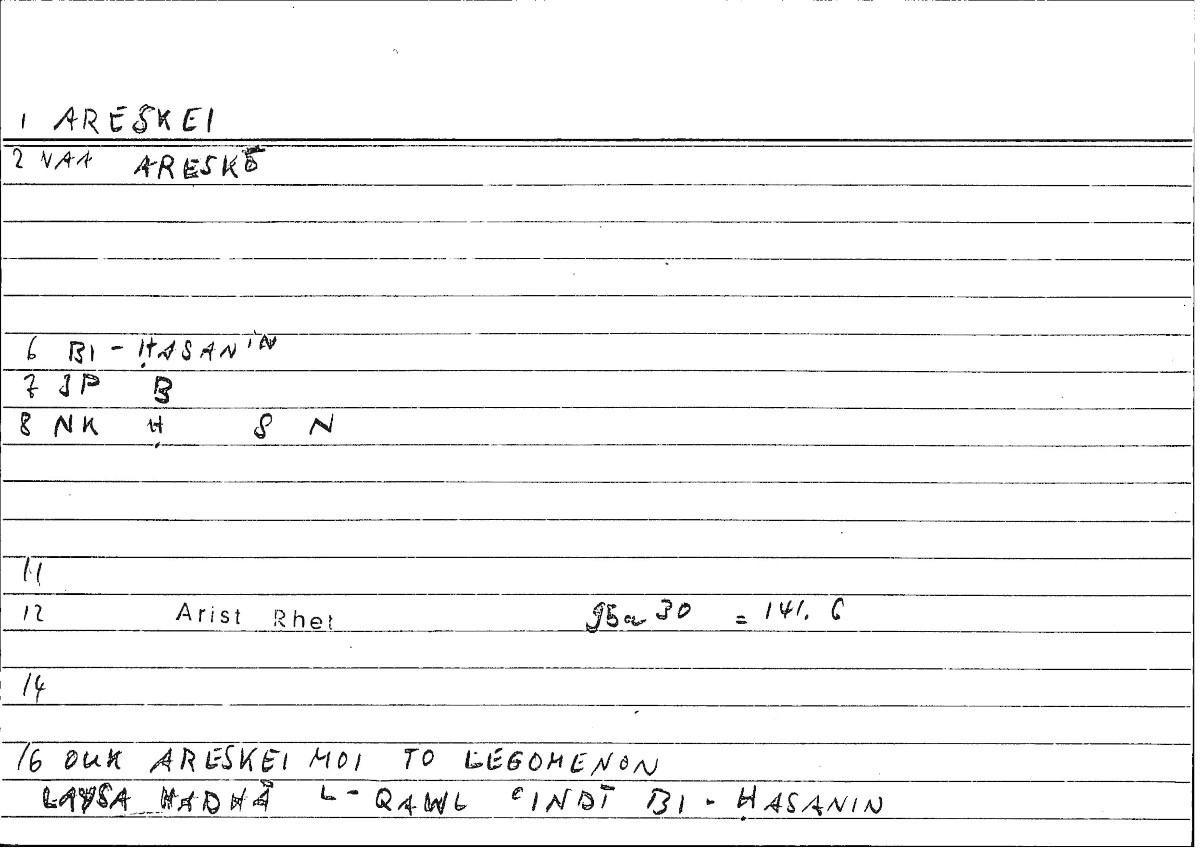 1 ARESKEI
2 VAA ARESKŌ
6 BI - ḤASANIN
7 JP B
8 NK Ḥ S N
11
12 Arist Rhet 95a 30 = 141. 6
14
16 OUK ARESKEI MOI TO LEGOMENON
LAYSA HADHĀ L- QAWL ʿINDĪ BI - ḤASANIN